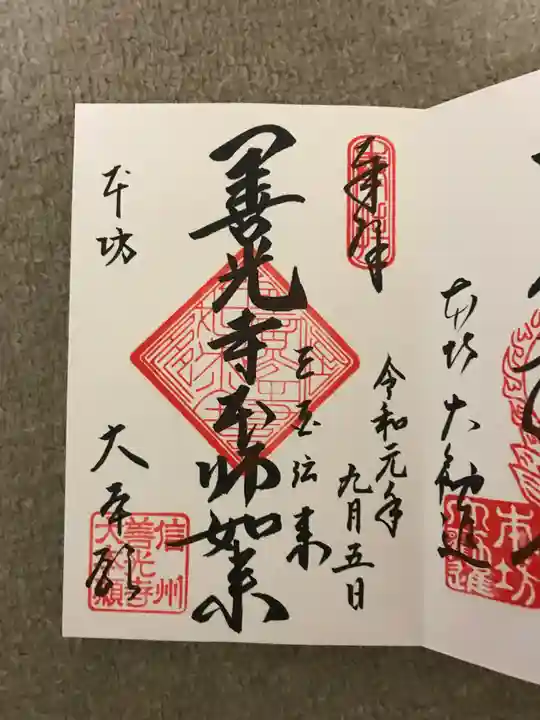 本坊 大勧進
本坊
大勧進
奉拝
令和元年
九月五日
三国伝来
善光寺本師如来
本坊
大本願
信州
善光寺
大本願